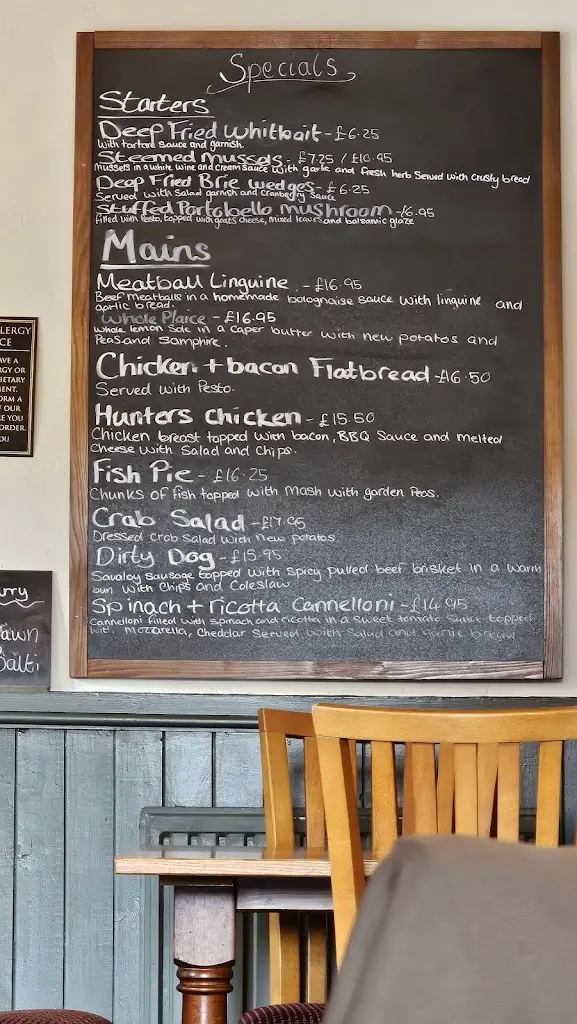 Specials
Starters
Deep Fried Whitbait - £6.25
with tartare sauce and garnish.
Steemed mussels - £7.25 / £10.95
Mussels in a white wine and cream sauce with garlic and fresh herb served with crusty bread
Deep Fried Brie wedges - £6.25
Served with salad garnish and Cranberry sauce
Stuffed Portobello mushroom - £6.95
filled with Pesto, topped with goats cheese, mixed leaves and balsamic glaze
Mains
Meatball Linguine - £16.95
Beef meatballs in a homemade bolognaise sauce with linguine and
garlic bread.
Whole Plaice - £16.95
Whole lemon Sole in a caper butter with new potatos and
Peas and Samphire.
Chicken + bacon Flatbread - £16.50
Served with Pesto.
Hunters Chicken - £15.50
Chicken breast topped with bacon, BBQ Sauce and melted
Cheese with Salad and Chips.
Fish Pie - £16.25
Chunks of fish topped with mash with garden Peas.
Crab Salad - £17.95
Dressed crab salad with new potatos.
Dirty Dog - £15.95
Savaloy sausage topped with spicy pulled beef brisket in a warm
bun with Chips and Coleslaw
Spinach + ricotta Cannelloni - £14.95
Cannelloni filled with spinach and ricotta in a sweet tomato sauce topped
with mozzarella, Cheddar Served with Salad and garlic bread
LLERGY
CE
AVE A
RGY OR
IETARY
MENT.
ORM A
F OUR
E YOU
ORDER.
OU
rry
awn
Balti